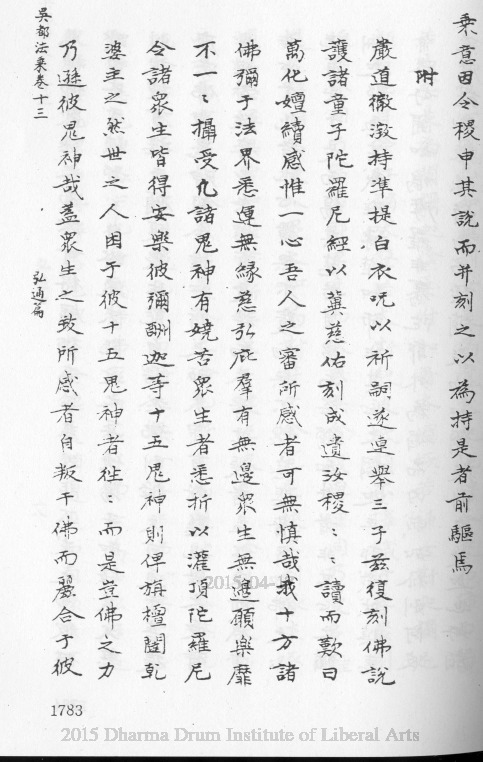 乘意因令稷申其說而并刻之以為持是者前驅焉
附
嚴道徹澂持準提白衣呪以祈嗣遂連舉三子茲復刻佛說
護諸童子陀羅尼經以冀慈佑刻成遺汝稷：：讀而歎曰
萬化嬗續感惟一心吾人之審所感者可無慎哉我十方諸
佛彌于法界悉運無緣慈弘庇羣有無邊眾生無邊願樂靡
不一：攝受凡諸鬼神有嬈苦眾生者悉折以灌頂陀羅尼
令諸眾生皆得安樂彼彌酬迦等十五鬼神則俾旃檀闥乾
婆主之然世之人困于彼十五鬼神者徃：而是豈佛之力
乃遜彼鬼神哉蓋眾生之致所感者自叛于佛而麗合于彼
吳都法乘卷十三
弘通篇
1783
2015-04-
2015 Dharma Drum Institute of Liberal Arts